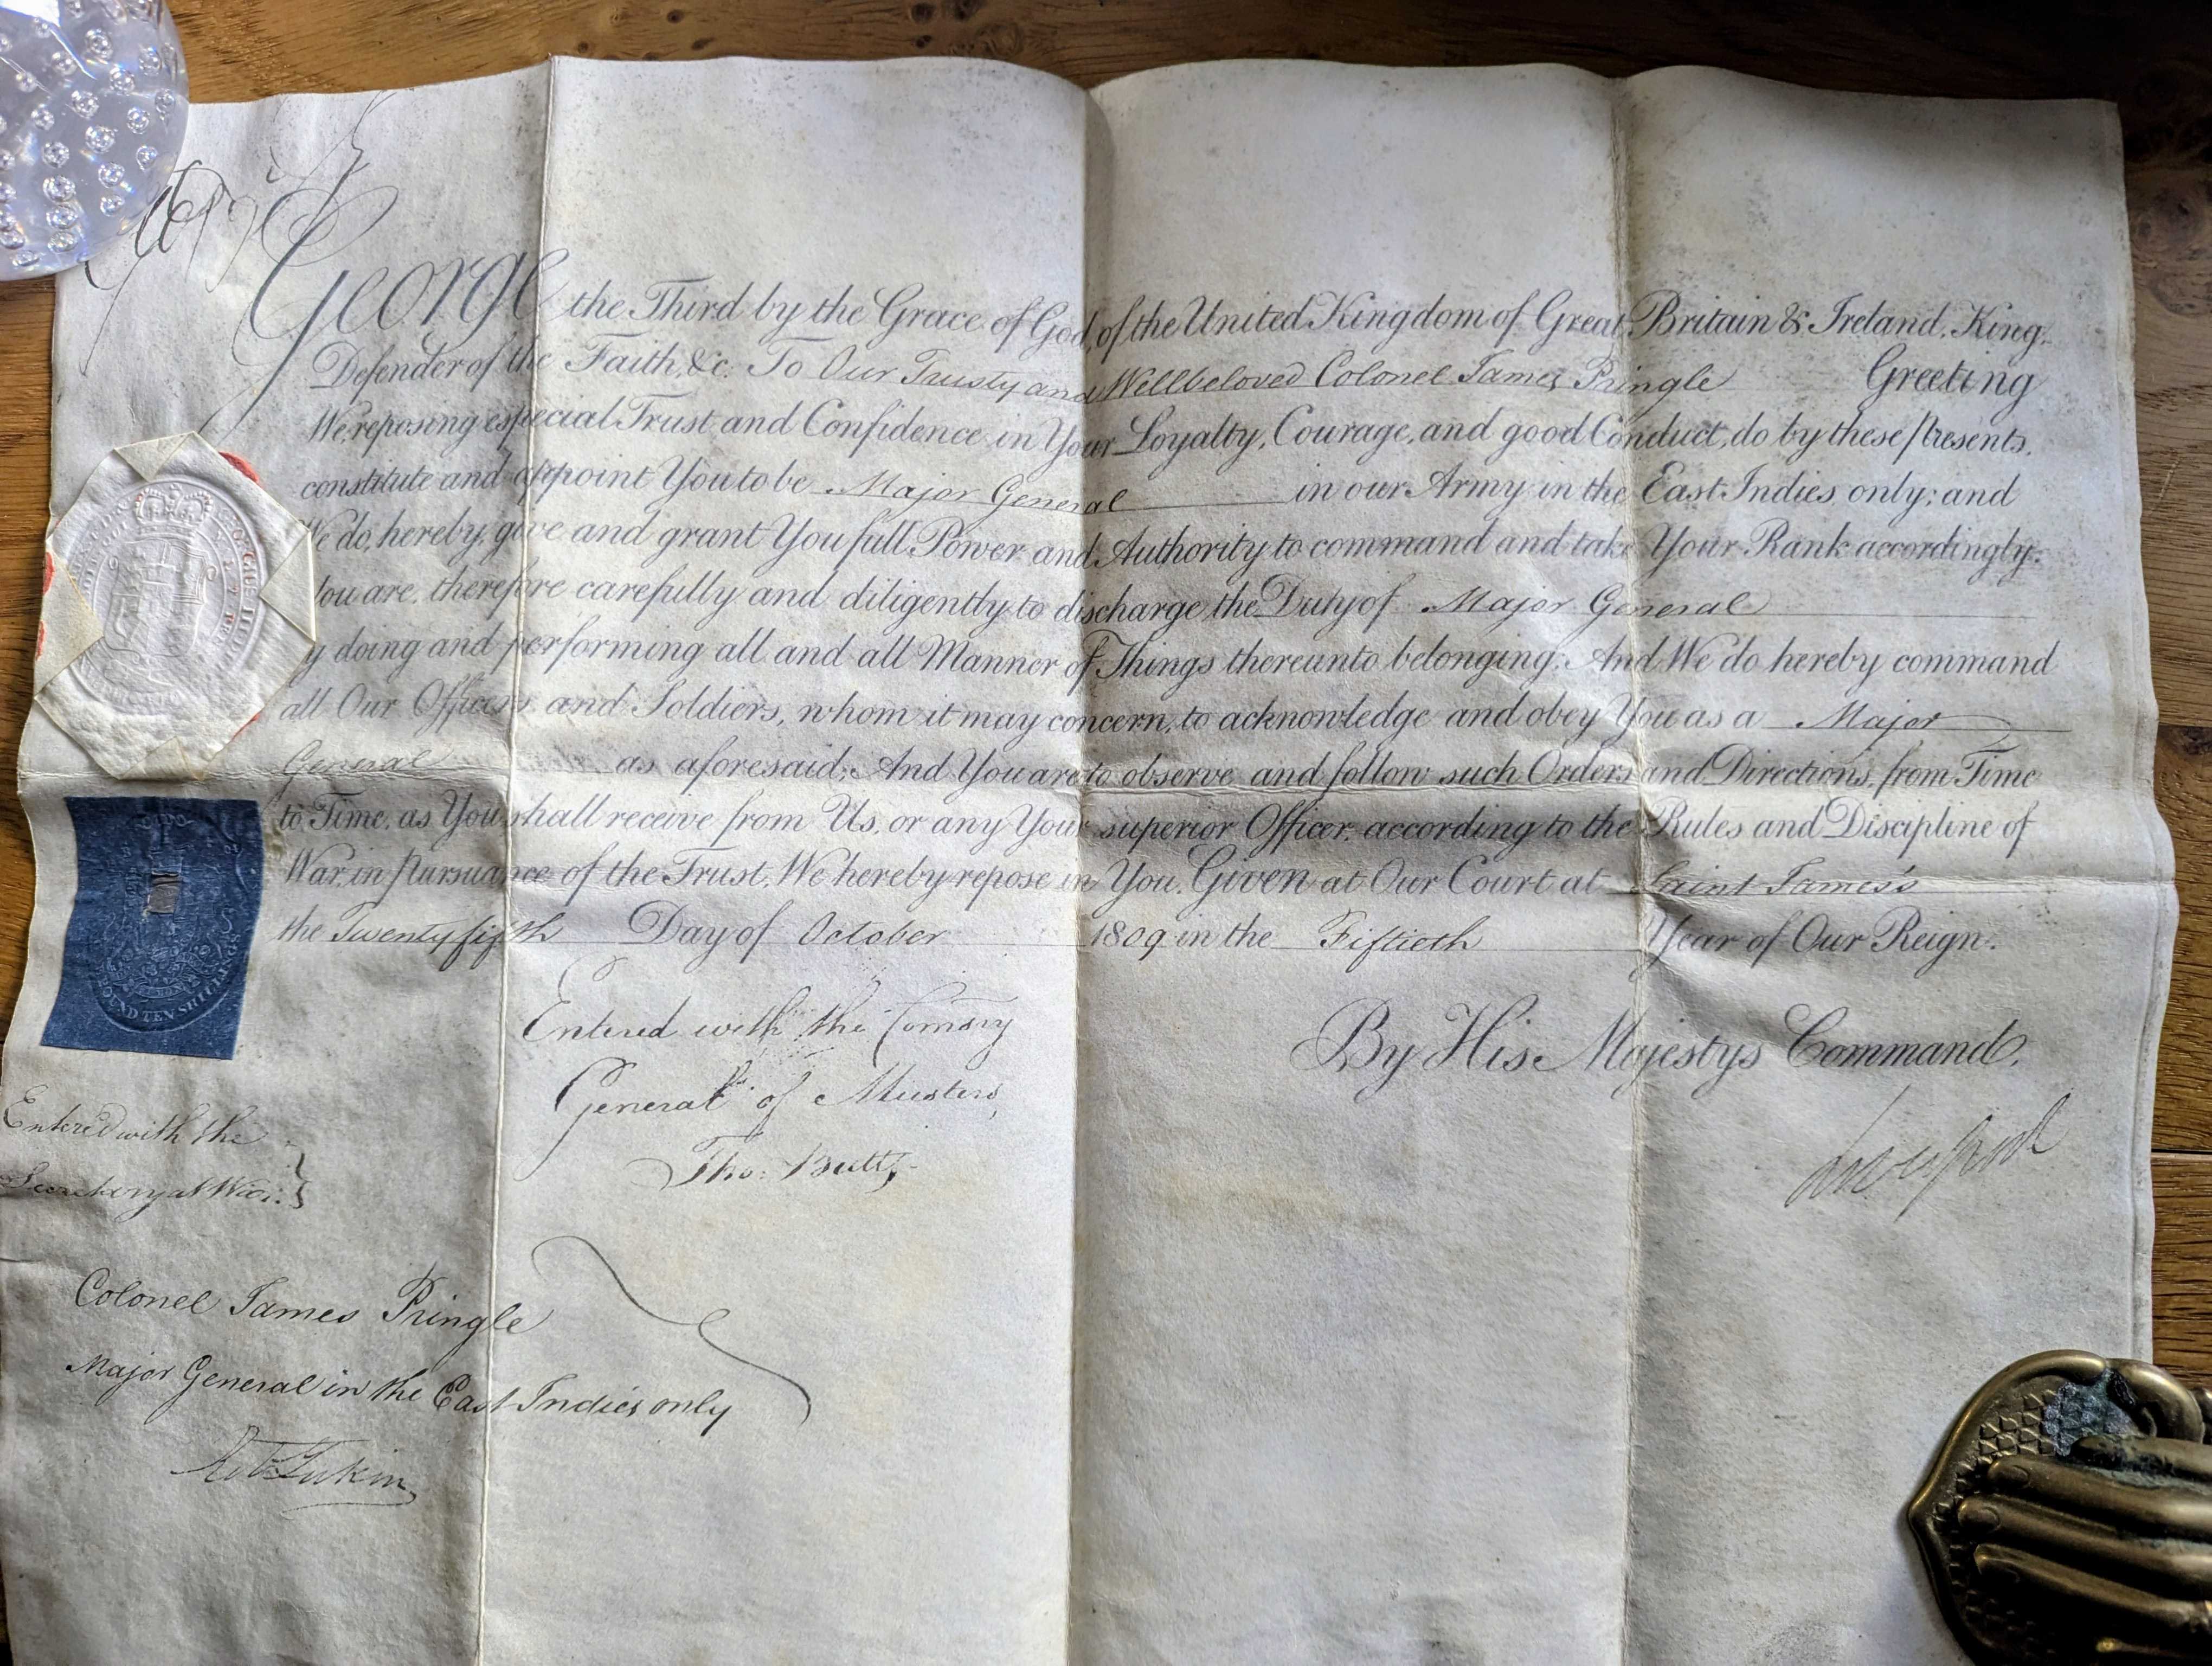 George the Third by the Grace of God, of the United Kingdom of Great Britain & Ireland, King,
Defender of the Faith, &c. To Our Trusty and Wellbeloved Colonel James Pringle Greeting
We, reposing especial Trust and Confidence in Your Loyalty, Courage, and good Conduct, do by these Presents,
constitute and appoint You to be Major General in our Army in the East Indies only; and
We do, hereby, give and grant You full Power and Authority to command and take Your Rank accordingly.
You are, therefore carefully and diligently to discharge the Duty of Major General
by doing and performing all and all Manner of Things thereunto belonging; And We do hereby command
all Our Officers and Soldiers, whom it may concern, to acknowledge and obey You as a Major
General as aforesaid; And You are to observe and follow such Orders and Directions, from Time
to Time, as You shall receive from Us, or any Your superior Officer, according to the Rules and Discipline of
War, in Pursuance of the Trust, We hereby repose in You. Given at Our Court at Saint James's
the Twenty fifth Day of October 1809 in the Fiftieth Year of Our Reign.
By His Majestys Command,
Liverpool
Entered with the Comsry
General of Musters,
Tho: Butts
POUND TEN SHILLINGS
Entered with the
Secretary at War.
Colonel James Pringle
Major General in the East Indies only